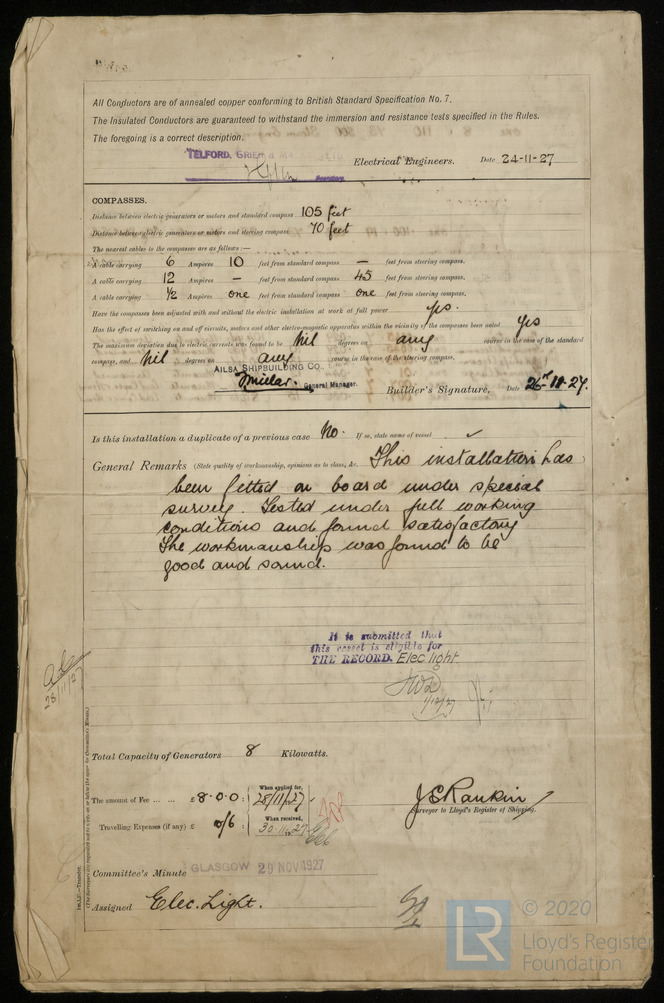 All Conductors are of annealed copper conforming to British Standard Specification No. 7.
The Insulated Conductors are guaranteed to withstand the immersion and resistance tests specified in the Rules.
The foregoing is a correct description.
TELFORD, GRIER & Electrical Engineers. Date 24-11-27
Secretary.
COMPASSES.
Distance between electric generators or motors and standard compass 105 feet
Distance between electric generators or motors and steering compass 70 feet
The nearest cables to the compasses are as follows:—
A cable carrying 6 Ampères 10 feet from standard compass — feet from steering compass.
A cable carrying 12 Ampères — feet from standard compass 45 feet from steering compass.
A cable carrying ½ Ampères one feet from standard compass one feet from steering compass.
Have the compasses been adjusted with and without the electric installation at work at full power yes.
Has the effect of switching on and off circuits, motors and other electro-magnetic apparatus within the vicinity of the compasses been noted yes
The maximum deviation due to electric currents was found to be Nil degrees on any course in the case of the standard
compass, and Nil degrees on any course in the case of the steering compass.
AILSA SHIPBUILDING CO.
Millar. General Manager. Builder's Signature. Date 26
Is this installation a duplicate of a previous case No. If so, state name of vessel ✓
General Remarks (State quality of workmanship, opinions as to class, &c. This installation has
been fitted on board under special
survey. Tested under full working
conditions and found satisfactory
The workmanship was found to be
good and sound.
It is submitted that
this vessel is eligible for
THE RECORD. Elec light
1/12/27
28/11/27
Total Capacity of Generators 8 Kilowatts.
The amount of Fee ... ... £8-0-0 : When applied for, 28/11/27
Travelling Expenses (if any) £ : When received, 30.11.27
J C Rankin
Surveyor to Lloyd's Register of Shipping.
Committee's Minute GLASGOW 29 NOV 1927
Assigned Elec. Light.
LR © 2020
Lloyd's Register
Foundation